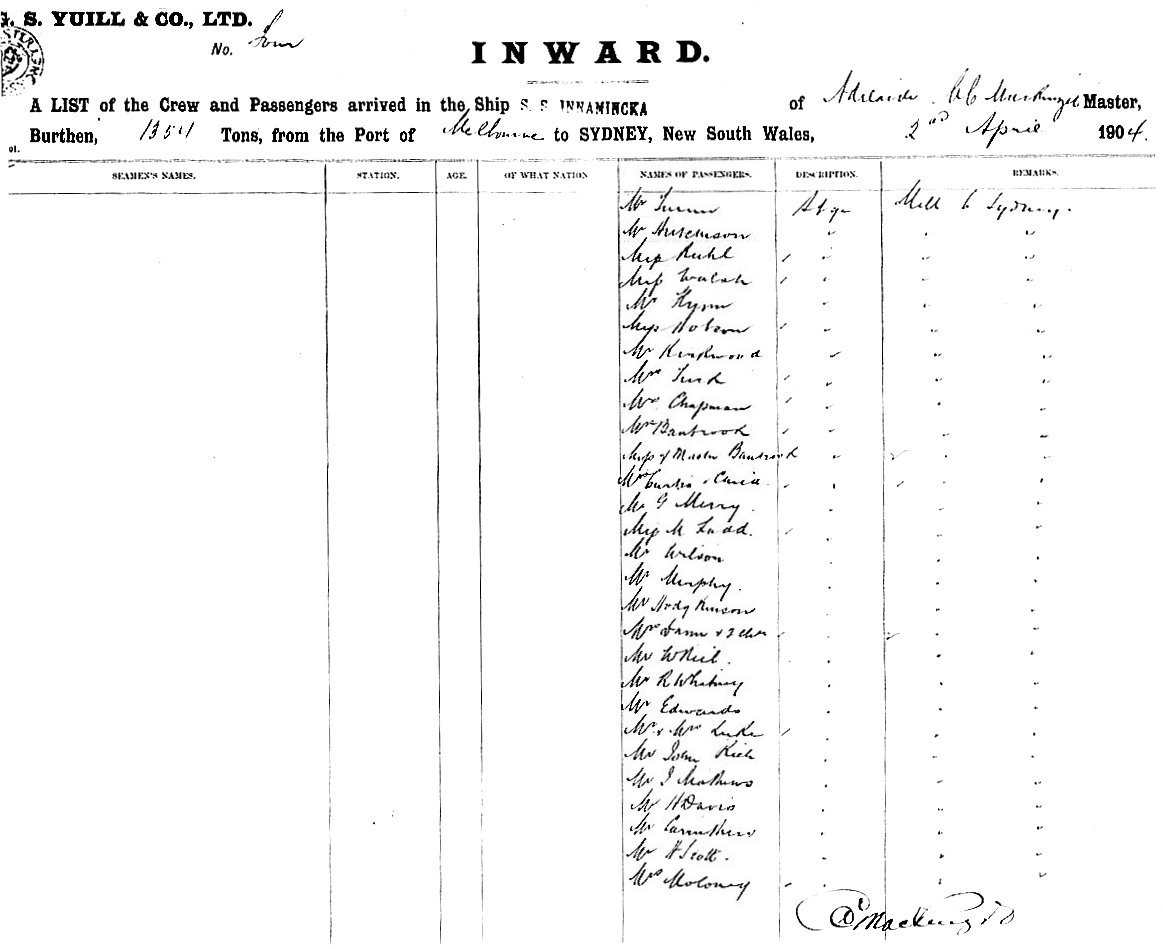 G. S. YUILL & CO., LTD.
No. Four
INWARD.
A LIST of the Crew and Passengers arrived in the Ship S. S INNAMINCKA of Adelaide Master,
Burthen, 1354 Tons, from the Port of Melbourne to SYDNEY, New South Wales, 2nd April 1904.
SEAMEN'S NAMES. STATION. AGE. OF WHAT NATION NAMES OF PASSENGERS. DESCRIPTION. REMARKS.
Mr Melb to Sydney.
Mr Hutchison " " "
Miss Ruhl " " "
Miss Walsh " " "
Mr " " "
Miss Hobson " " "
Mr Kirkwood " " "
Mrs " " "
Mrs Chapman " " "
Mrs Banbrook " " "
Miss & Master Banbrook " " "
Mrs Curtis & " " "
Mr G Merry " " "
Miss M Ladd. " " "
Mr Wilson " " "
Mr Murphy. " " "
Mr Hodgkinson " " "
Mrs Dann & 2 chn " " "
Mr W Neil. " " "
Mr R Whitney " " "
Mr Edwards " " "
Mr & Mrs Luke " " "
Mr John Rich " " "
Mr J Mathews " " "
Mr H Davis " " "
Mr Carruthers " " "
Mr H Scott. " " "
Mrs Moloney " " "